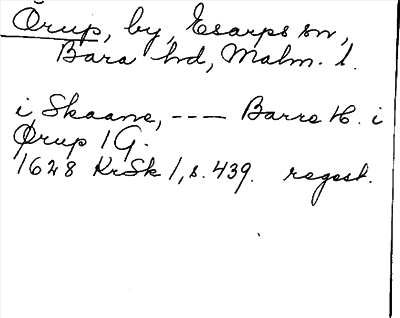 Örup, by, Esarps sn,
Bara hd, Malm. l.
i Skaane, --- Barre H. i
Ørup 1 G.
1628 KrSk 1, s. 439. regest.